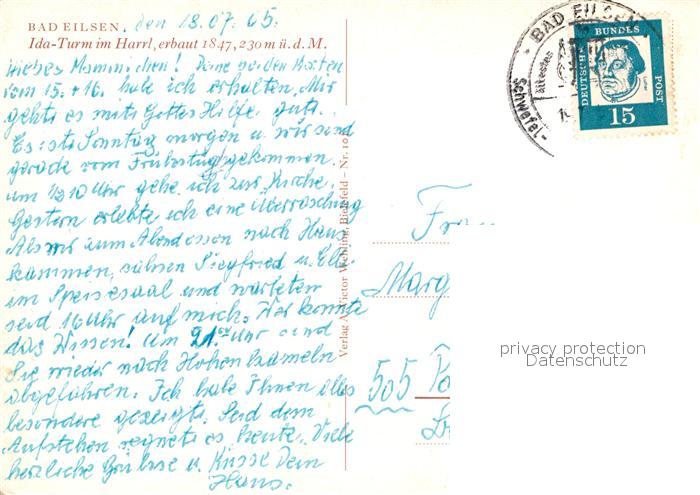 BAD EILSEN, den 18.07.65.
Ida-Turm im Harrl, erbaut 1847, 230 m ü. d. M.
Liebes Mammichen! Deine beiden Karten
vom 15. + 16. habe ich erhalten. Mir
geht es mit Gottes Hilfe gut.
Es ist Sonntag morgen u. wir sind
gerade vom Frühstück gekommen.
um 1/2 10 Uhr gehe ich zur Kirche.
Gestern erlebte ich eine Überraschung
Als wir zum Abendessen nach Haus
kammen, saßen Siegfried u. Elli
im Speisesaal und warteten
seid 16 Uhr auf mich. Wer konnte
das Wissen! Um 21.00 Uhr sind
Sie wieder nach Hohenhameln
abgefahren. Ich habe Ihnen alles
besondere gezeigt. Seid dem
Aufstehen regnet es heute. Viele
herzliche Grüsse u. Küsse Dein
Hans.
Verlag A. Victor Wehling, Bielefeld – Nr. 10
BAD EILSEN
ältestes
Schwefel-
DEUTSCHE BUNDES POST
Luther
15
Fr
Marg
505
privacy protection
Datenschutz